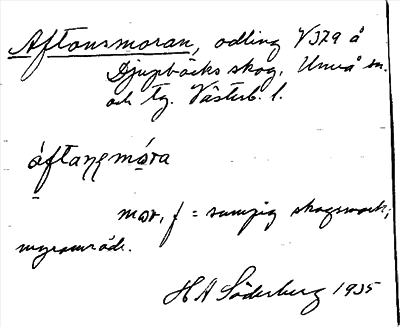 Aftonsmoran, odling V379 å
Djupbäcks skog, Umeå sn.
och tg. Västerb. l.
áftaŋsmóra
mor, f = sumpig skogsmark;
myrområde.
H A Söderberg 1935